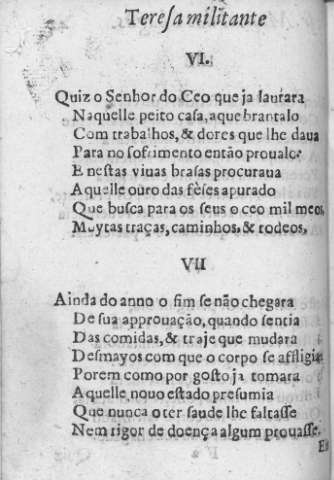 Teresa militante
VI.
Quiz o Senhor do Ceo que ja laurara
Naquelle peito casa, aquebrantalo
Com trabalhos, & dores que lhe daua
Para no sofrimento então proualo
E nestas viuas brasas procuraua
Aquelle ouro das fèses apurado
Que busca para os seus o ceo mil meos,
Muytas traças, caminhos, & rodeos,
VII
Ainda do anno o fim se não chegara
De sua approuação, quando sentia
Das comidas, & traje que mudara
Desmayos com que o corpo se affligia
Porem como por gosto ja tomara
Aquelle nouo estado presumia
Que nunca o ter saude lhe faltasse
Nem rigor de doença algum prouasse,